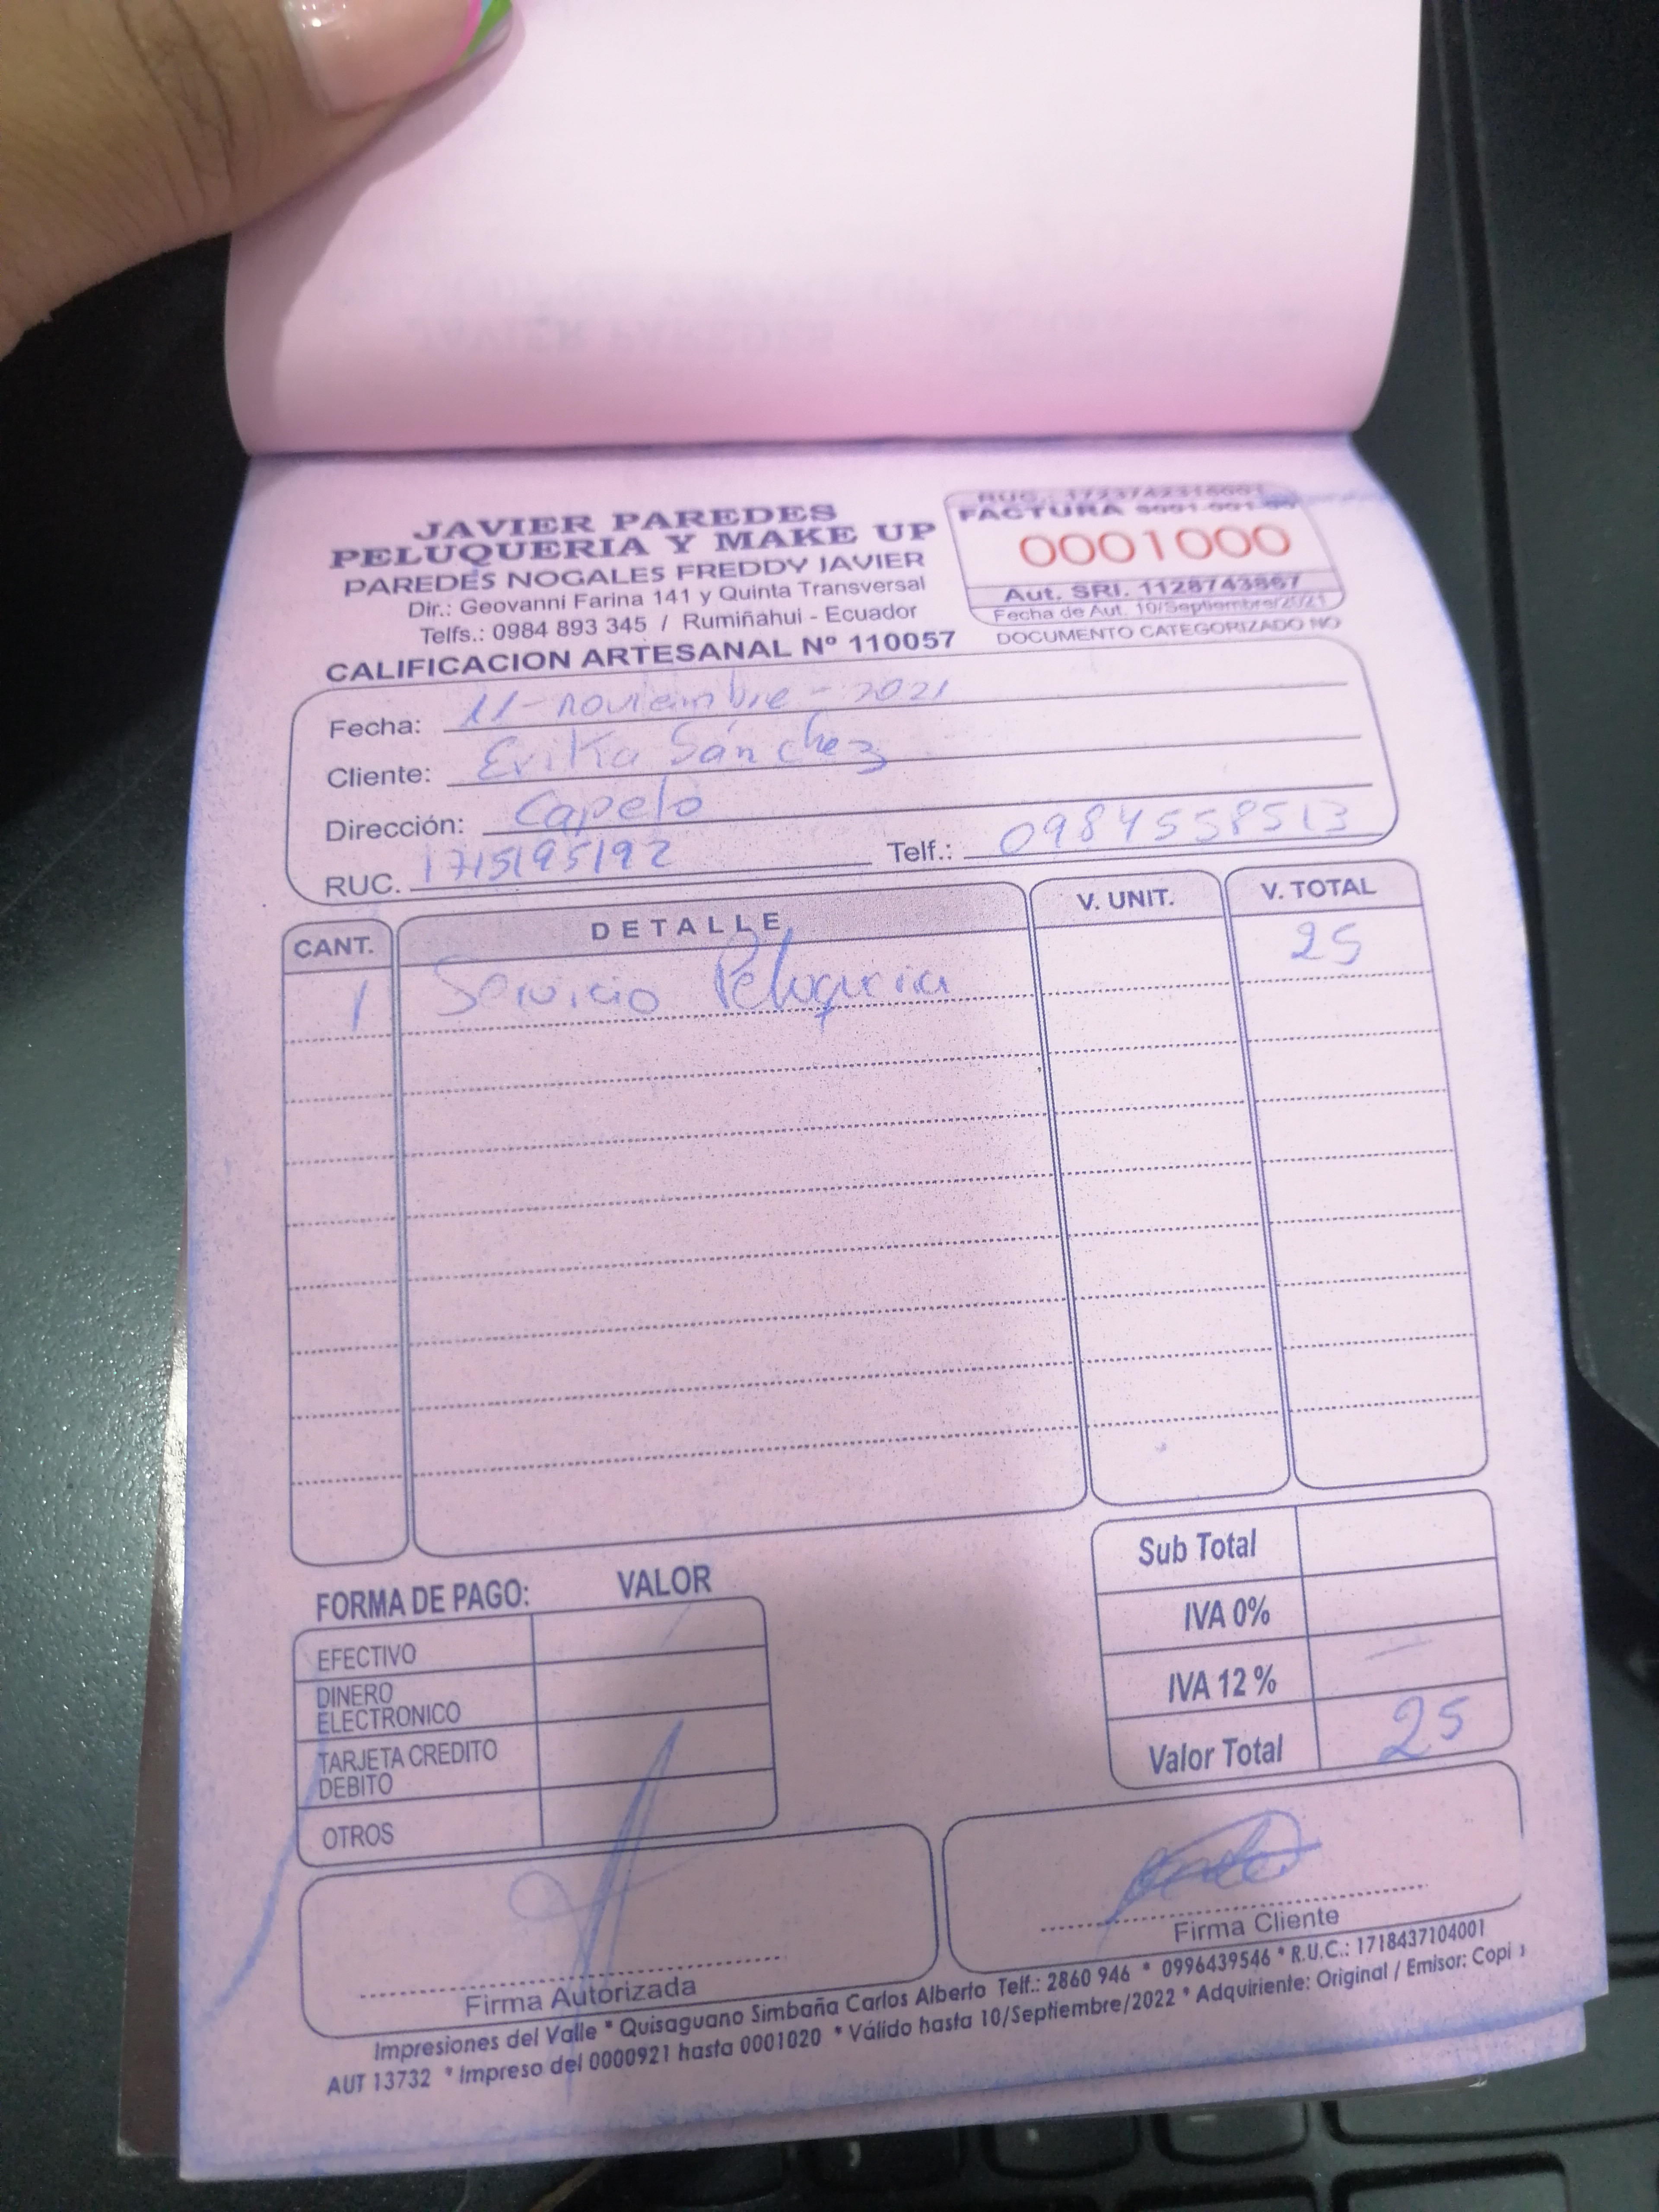 JAVIER PAREDES
PELUQUERIA Y MAKE UP
PAREDES NOGALES FREDDY JAVIER
Dir.: Geovanni Farina 141 y Quinta Transversal
Telfs.: 0984 893 345 / Rumiñahui - Ecuador
CALIFICACION ARTESANAL Nº 110057
RUC.: 1723742316001
FACTURA
0001000
Aut. SRI. 1128743867
Fecha de Aut. 10/Septiembre/2021
DOCUMENTO CATEGORIZADO NO
Fecha: 11-noviembre-2021
Cliente: Erika Sánchez
Dirección: Capelo
RUC. 1715195192 Telf.: 0984558513
CANT. DETALLE V. UNIT. V. TOTAL
1 Servicio Peluqueria 25
Sub Total
IVA 0%
IVA 12 % -
Valor Total 25
FORMA DE PAGO: VALOR
EFECTIVO
DINERO
ELECTRONICO
TARJETA CREDITO
DEBITO
OTROS
Firma Autorizada
Firma Cliente
Impresiones del Valle * Quisaguano Simbaña Carlos Alberto Telf.: 2860 946 * 0996439546 * R.U.C.: 1718437104001
AUT 13732 * Impreso del 0000921 hasta 0001020 * Válido hasta 10/Septiembre/2022 * Adquiriente: Original / Emisor: Copi